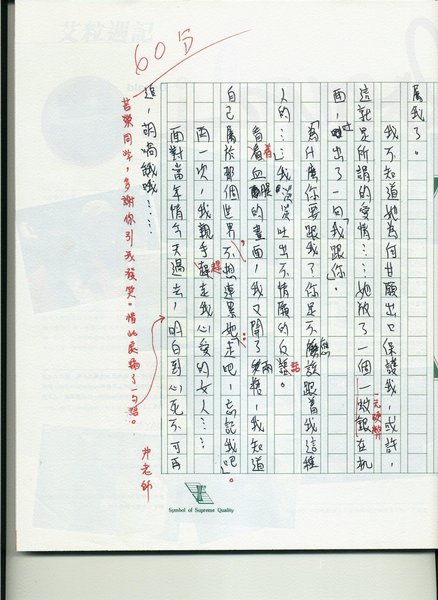 60分
屬我了。
我不知道她為何甘願出口保護我，或許，
這就是所謂的愛情……她放了一個一塊銀在桌
一元硬幣
面，吐出了一句「我跟你」
「為什麼你要跟我？你是不應該跟著我這種
人的……」我哭哭吐出不情願的反話。
話
看著血腥的畫面，我又開了兩槍，我知道
自己屬於那個世界不想連累她「走吧，忘記我吧」。
再一次，我親手趕走我心愛的女人……
趕
面對當年情今天過去，明白到心死不可再
追，胡嗬哦哦！……
若榮同學，多謝你引我發笑。情此處漏了一句話。
尹老師
Symbol of Supreme Quality